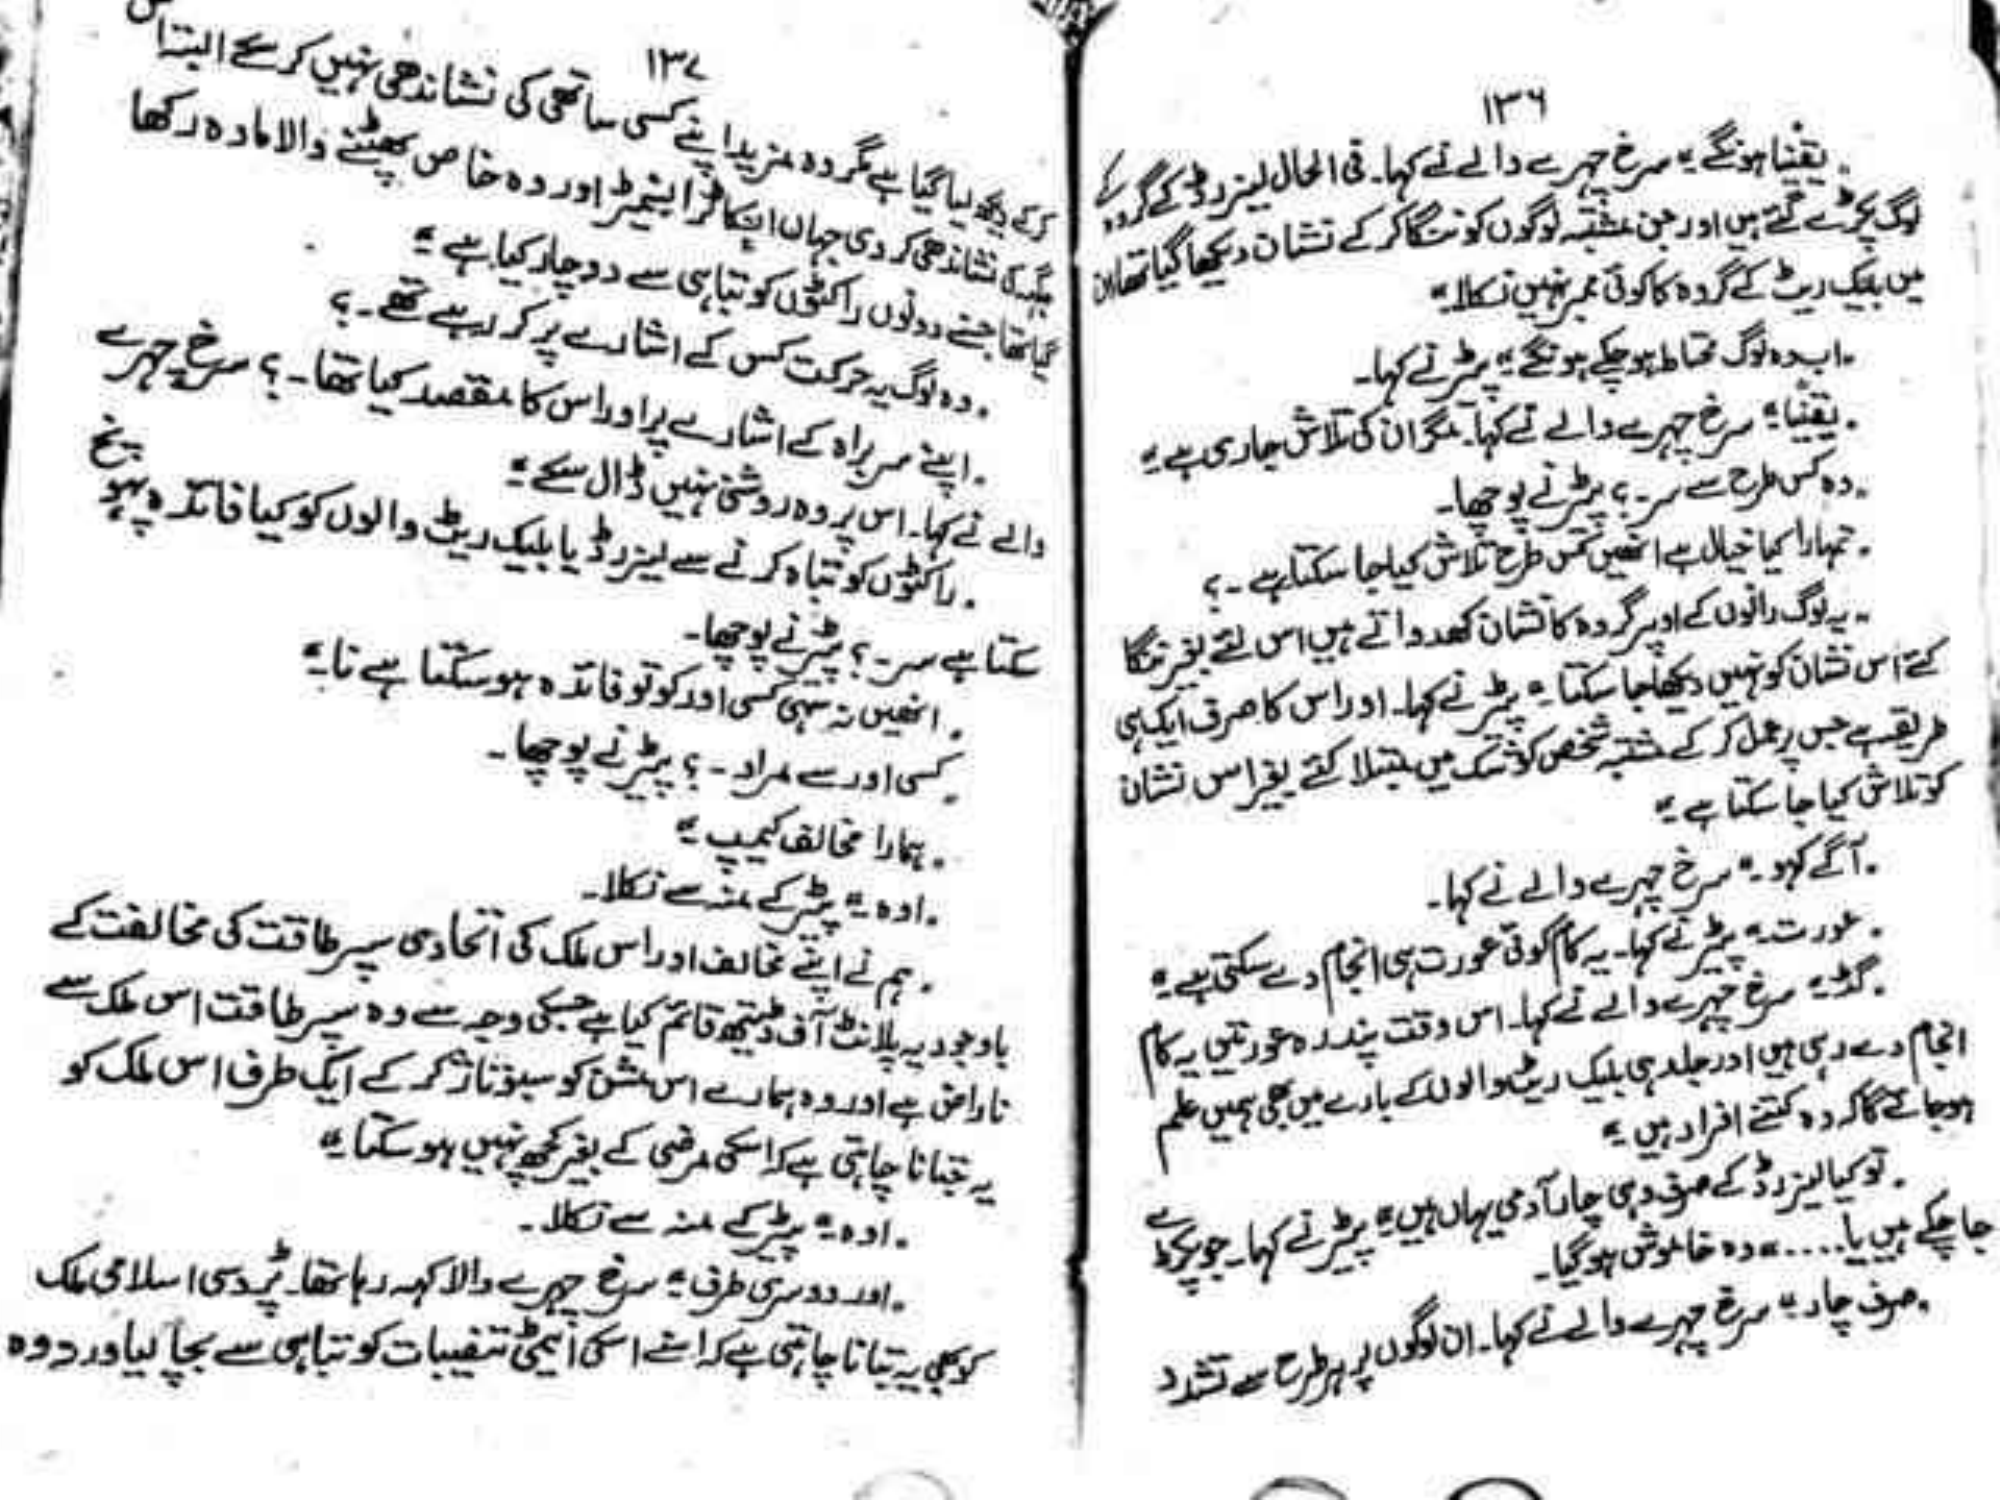 ۱۳۶
۔ یقیناً ہونگے ‘‘ سرخ چہرے والے نے کہا۔ فی الحال لیزرڈ کے گروہ کے
لوگ پکڑے گئے ہیں اور جن مشتبہ لوگوں کو ننگا کر کے نشان دیکھا گیا تھا ان
میں بلیک ریٹ کے گروہ کا کوئی ممبر نہیں نکلا ‘‘
۔ اب وہ لوگ محتاط ہو چکے ہونگے ‘‘ پیٹر نے کہا۔
۔ یقیناً ‘‘ سرخ چہرے والے نے کہا۔ مگر ان کی تلاش جاری ہے ‘‘
۔ وہ کس طرح سے سر۔؟ پیٹر نے پوچھا۔
۔ تمہارا کیا خیال ہے انھیں کس طرح تلاش کیا جا سکتا ہے۔؟
۔ یہ لوگ رانوں کے اوپر گروہ کا نشان کھدواتے ہیں اس لئے بغیر ننگا
کئے اس نشان کو نہیں دیکھا جا سکتا ‘‘ پیٹر نے کہا۔ اور اس کا صرف ایک ہی
طریقہ ہے جس پر عمل کر کے مشتبہ شخص کو شک میں مبتلا کئے بغیر اس نشان
کو تلاش کیا جا سکتا ہے ‘‘
۔ آگے کہو۔ ‘‘ سرخ چہرے والے نے کہا۔
۔ عورت ‘‘ پیٹر نے کہا۔ یہ کام کوئی عورت ہی انجام دے سکتی ہے ‘‘
۔ گڈ ‘‘ سرخ چہرے والے نے کہا۔ اس وقت پندرہ عورتیں یہ کام
انجام دے رہی ہیں اور جلد ہی بلیک ریٹ والوں کے بارے میں بھی ہمیں علم
ہو جائے گا کہ وہ کتنے افراد ہیں ‘‘
۔ تو کیا لیزرڈ کے صرف وہی چار آدمی یہاں ہیں ‘‘ پیٹر نے کہا۔ جو پکڑے
جا چکے ہیں یا.... ‘‘ وہ خاموش ہو گیا۔
۔ صرف چار ‘‘ سرخ چہرے والے نے کہا۔ ان لوگوں پر ہر طرح سے تشدد
۱۳۷
کر کے دیکھ لیا گیا ہے مگر وہ مزید اپنے کسی ساتھی کی نشاندھی نہیں کر سکے البتہ اس
جگہ کی نشاندھی کر دی جہاں اسکا ٹرانسمیٹر اور وہ خاص پھٹنے والا مادہ رکھا
گیا تھا جسنے دونوں راکٹوں کو تباہی سے دوچار کیا ہے ‘‘
۔ وہ لوگ یہ حرکت کس کے اشارے پر کر رہے تھے۔؟
۔ اپنے سربراہ کے اشارے پر اور اس کا مقصد کیا تھا۔؟ سرخ چہرے
والے نے کہا۔ اس پر وہ روشنی نہیں ڈال سکے ‘‘
۔ راکٹوں کو تباہ کرنے سے لیزرڈ یا بلیک ریٹ والوں کو کیا فائدہ پہونچ
سکتا ہے سر۔؟ پیٹر نے پوچھا۔
۔ انھیں نہ سہی کسی اور کو تو فائدہ ہو سکتا ہے نا ‘‘
۔ کسی اور سے مراد۔؟ پیٹر نے پوچھا۔
۔ ہمارا مخالف کیمپ ‘‘
۔ اوہ۔ ‘‘ پیٹر کے منہ سے نکلا۔
۔ ہم نے اپنے مخالف اور اس ملک کی اتحادی سپر طاقت کی مخالفت کے
باوجود یہ پلانٹ آف ڈیتھ قائم کیا ہے جسکی وجہ سے وہ سپر طاقت اس ملک سے
ناراض ہے اور وہ ہمارے اس مشن کو سبوتاژ کر کے ایک طرف اس ملک کو
یہ جتانا چاہتی ہے کہ اسکی مرضی کے بغیر کچھ نہیں ہو سکتا ‘‘
۔ اوہ ‘‘ پیٹر کے منہ سے نکلا۔
۔ اور دوسری طرف ‘‘ سرخ چہرے والا کہہ رہا تھا۔ پڑوسی اسلامی ملک
کو بھی یہ بتانا چاہتی ہے کہ اسنے اسکی ایٹمی تنصیبات کو تباہی سے بچا لیا ورنہ وہ